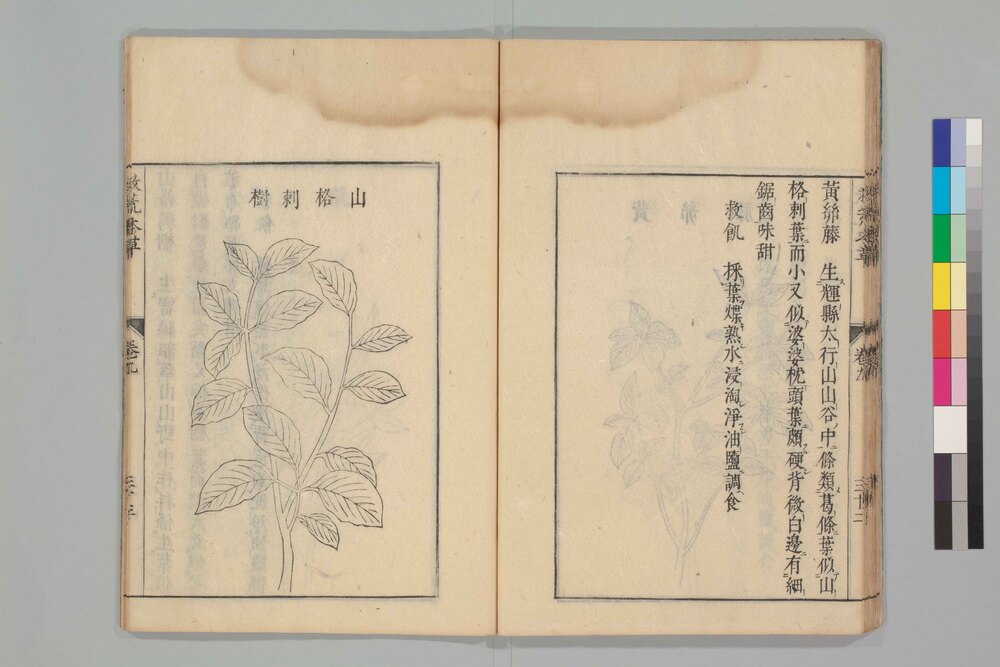 黃絲藤　生輝縣太行山山谷中條類葛條葉似山
格刺葉而小又似婆婆枕頭葉頗硬背微白邊有細
鋸齒味甜
救飢　採葉煠熟水浸淘淨油鹽調食
卷九
三十二
山格刺樹
救荒本草
卷九